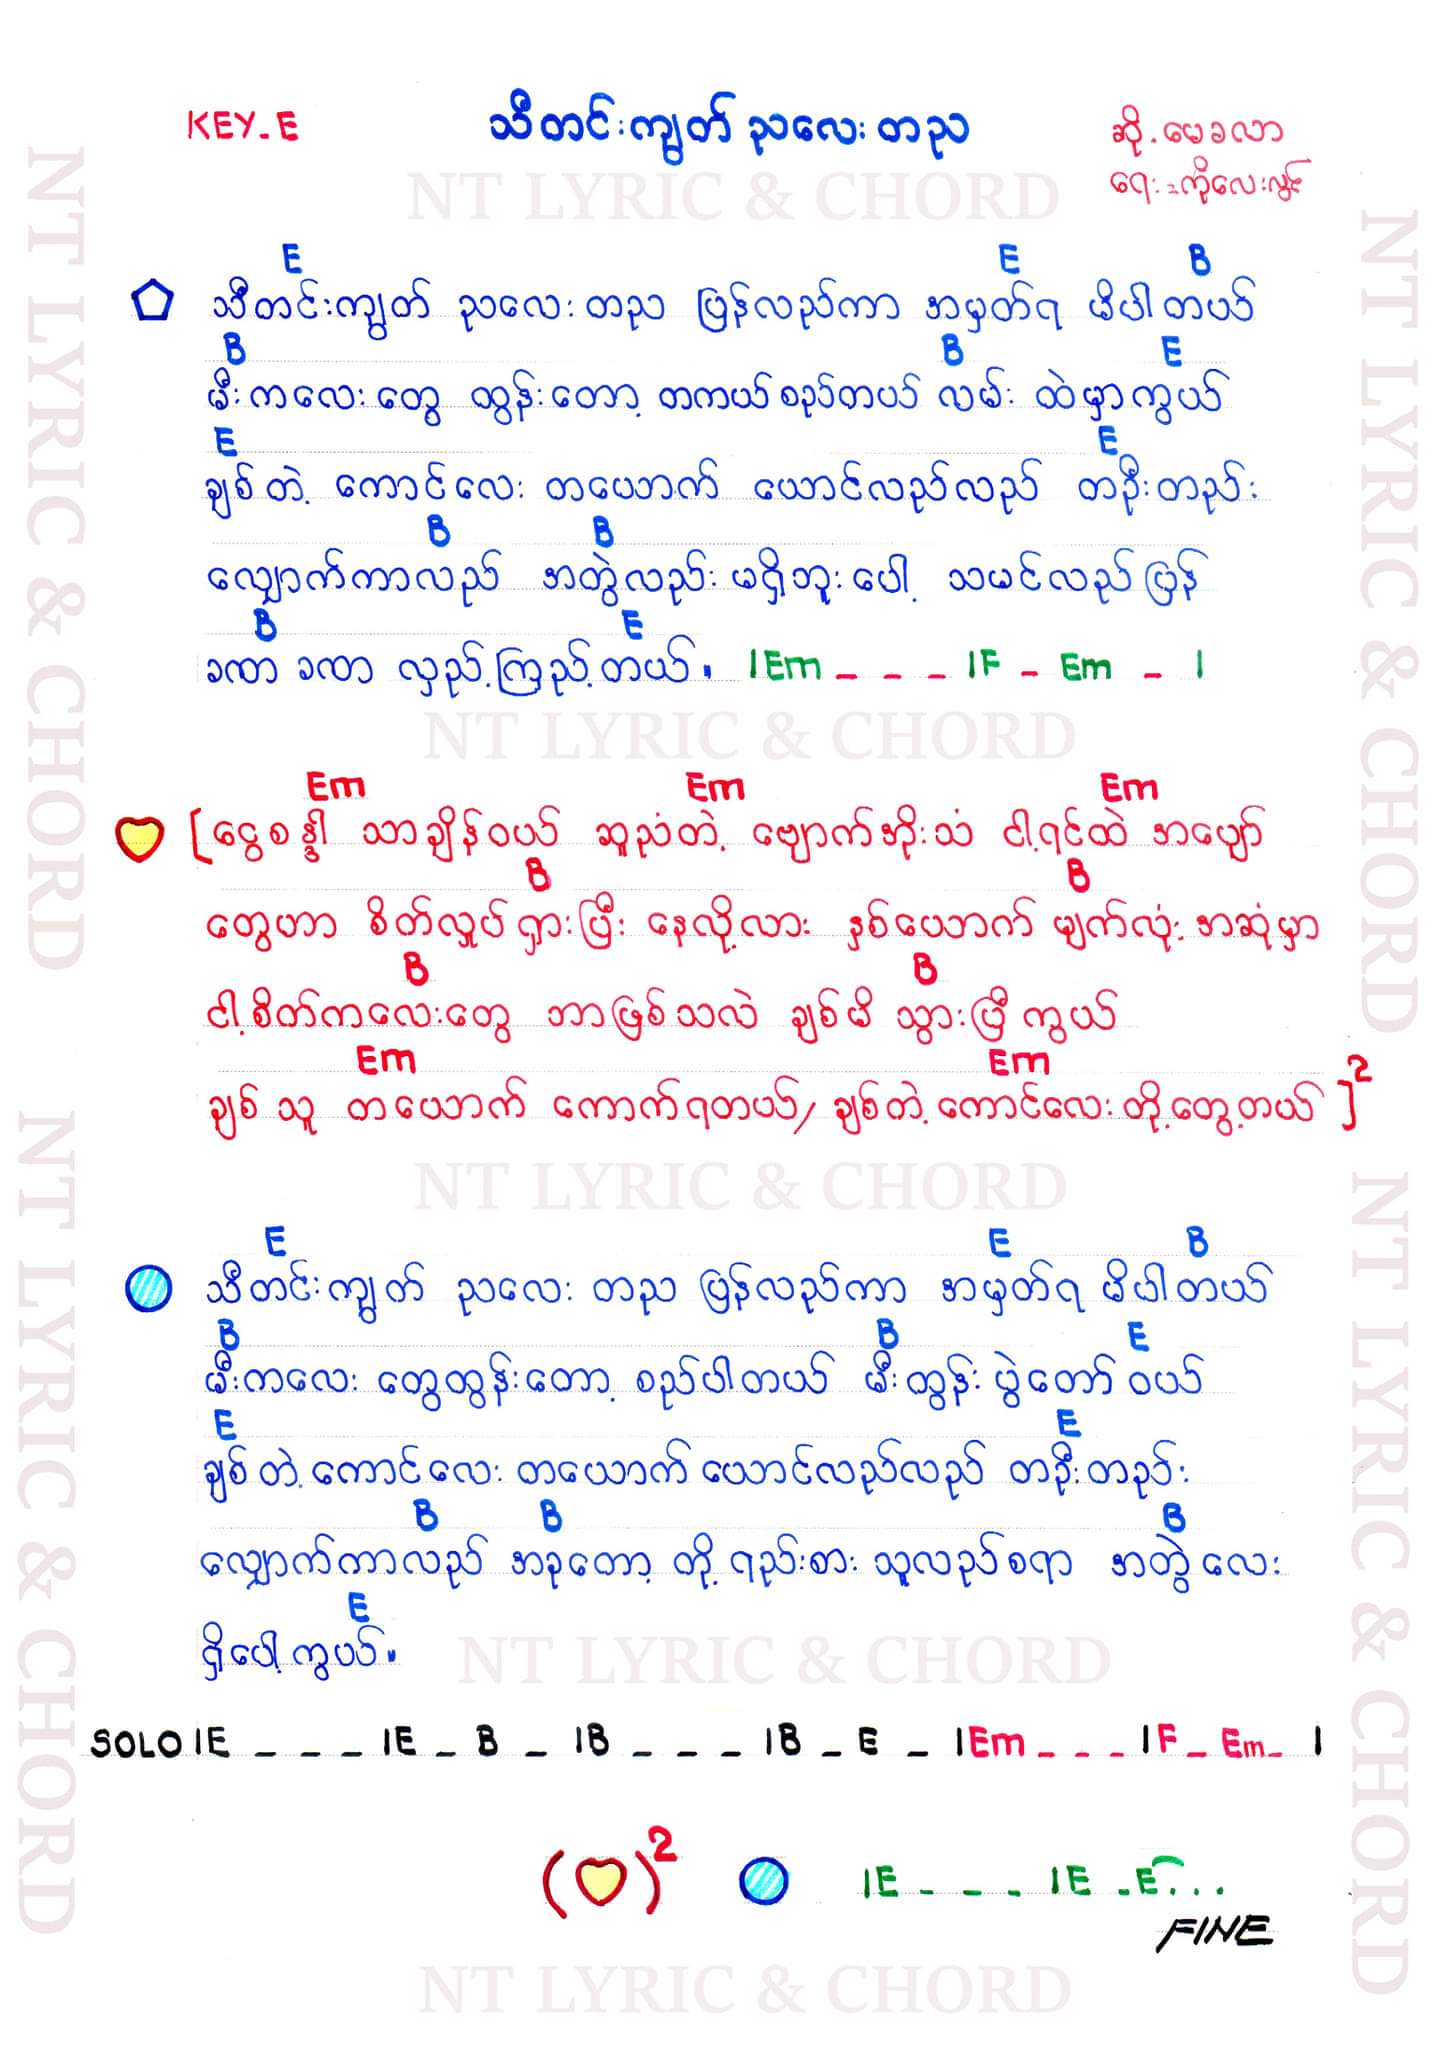 KEY-E သီတင်းကျွတ် ညလေး တည ဆို.မေခလာ
ရေး-ကိုလေးလွင်
NT LYRIC & CHORD
E E B
သီတင်းကျွတ် ညလေး တည ပြန်လည်ကာ အမှတ်ရ မိပါတယ်
B B E
မီးကလေးတွေ ထွန်းတော့ တကယ်စည်တယ် လမ်း ထဲမှာကွယ်
E E
ချစ်တဲ့ ကောင်လေး တယောက် ယောင်လည်လည် တဦးတည်း
B B
လျှောက်ကာလည် အတွဲလည်း မရှိဘူးပေါ့ သမင်လည်ပြန်
B E
ခဏ ခဏ လှည့်ကြည့်တယ်။ | Em _ _ _ | F _ Em _ |
NT LYRIC & CHORD
Em Em Em
[ငွေစန္ဒါ သာချိန်ဝယ် ဆူညံတဲ့ ဗျောက်အိုးသံ ငါ့ရင်ထဲ အပျော်
B B
တွေဟာ စိတ်လှုပ်ရှားပြီး နေလို့လား နှစ်ယောက် မျက်လုံး အဆုံမှာ
B B
ငါ့စိတ်ကလေးတွေ ဘာဖြစ်သလဲ ချစ်မိ သွားပြီ ကွယ်
Em Em
ချစ် သူ တယောက် ကောက်ရတယ်/ ချစ်တဲ့ကောင်လေး တို့တွေ့တယ်]²
NT LYRIC & CHORD
E E B
သီတင်းကျွတ် ညလေး တည ပြန်လည်ကာ အမှတ်ရ မိပါတယ်
B B E
မီးကလေး တွေထွန်းတော့ စည်ပါတယ် မီးထွန်း ပွဲတော် ဝယ်
E E
ချစ်တဲ့ကောင်လေး တယောက် ယောင်လည်လည် တဦးတည်း
B B B
လျှောက်ကာလည် အခုတော့ တို့ ရည်းစား သူလည်စရာ အတွဲလေး
E
ရှိပေါ့ကွယ်။
NT LYRIC & CHORD
SOLO | E _ _ _ | E _ B _ | B _ _ _ | B _ E _ | Em _ _ _ | F _ Em _ |
( )² | E _ _ _ | E _ E . . .
FINE
NT LYRIC & CHORD
NT LYRIC & CHORD
NT LYRIC & CHORD
NT LYRIC & CHORD
NT LYRIC & CHORD